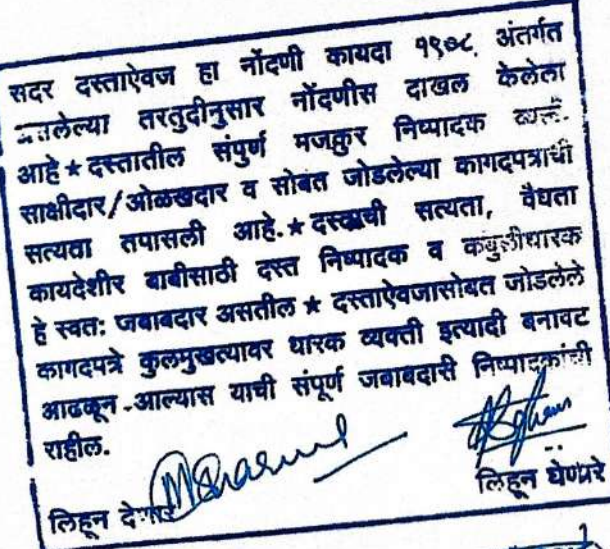 सदर दस्ताऐवज हा नोंदणी कायदा १९०८ अंतर्गत
तरतुदीनुसार नोंदणीस दाखल केलेला
आहे ★ दस्तातील संपुर्ण मजकुर निष्पादक
साक्षीदार/ओळखदार व सोबत जोडलेल्या कागदपत्राची
सत्यता तपासली आहे. ★ दस्ताची सत्यता, वैधता
कायदेशीर बाबीसाठी दस्त निष्पादक व कबुलीधारक
हे स्वत: जबाबदार असतील ★ दस्ताऐवजासोबत जोडलेले
कागदपत्रे कुलमुखत्यावर धारक व्यक्ती इत्यादी बनावट
आढळून -आल्यास याची संपूर्ण जबाबदारी निष्पादकांची
राहील.
लिहून देणार
लिहून घेणारे